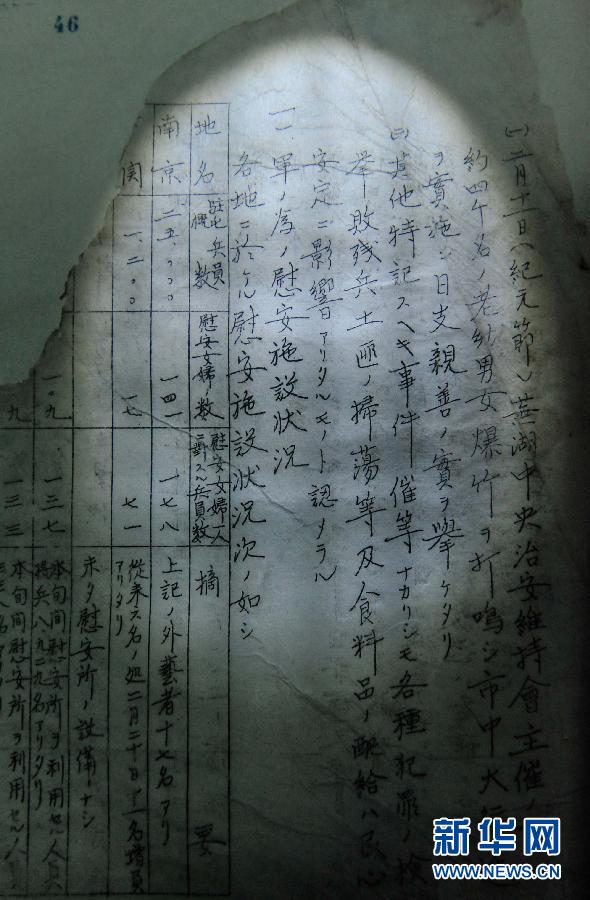 46
㈠ 二月十一日(紀元節)蕪湖中央治安維持會主催ノ
約四千名ノ老幼男女爆竹ヲ打鳴シ市中大行
ヲ實施シ日支親善ノ實ヲ擧ケタリ
其他特記スヘキ事件催等ナカリシモ各種犯罪ノ検
挙敗残兵土匪ノ掃蕩等及食料品ノ配給ハ民心
安定ニ影響アリタルモノト認メラル
一、軍ノ為ノ慰安施設状況
各地ニ於ケル慰安施設状況次ノ如シ
地名 駐屯兵員概数 慰安婦ノ数 慰安婦一人ニ對スル兵員数 摘要
南京 二五、〇〇〇 一四一 一七八 上記ノ外藝者十七名アリ
関 一、二〇〇 一七 七一 從来六名ノ処二月二十日十一名増員アリタリ
未タ慰安所ノ設備ナシ
一〇九 一三七 本旬間慰安所ヲ利用セル人員
将兵八九二九名アリタリ
九 一三三 本旬間慰安所ヲ利用セル人員
新华网
WWW.NEWS.CN